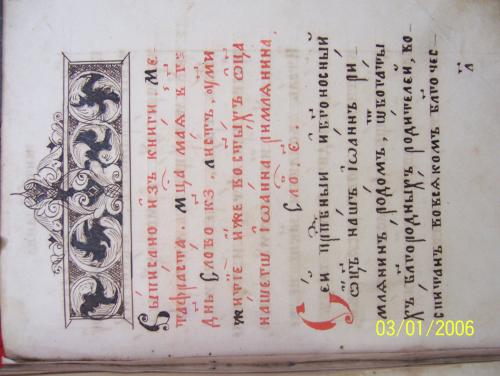 Выписано изъ книги Ме
тафраста. мц҃а маѧ въ
днь слово к҃з, листъ,
житїе иже во ст҃ыхъ ѿца
нашегѡ іѡанна римлѧнина.
Сей прпⷣбный ибг҃оносный
ѿцъ нашъ іѡаннъ ри
млѧнинъ родомъ, ѿбогаты
хъ бл҃городныхъ родителей, во
спитанъ вовсѧкомъ бл҃гочес
03/01/2006